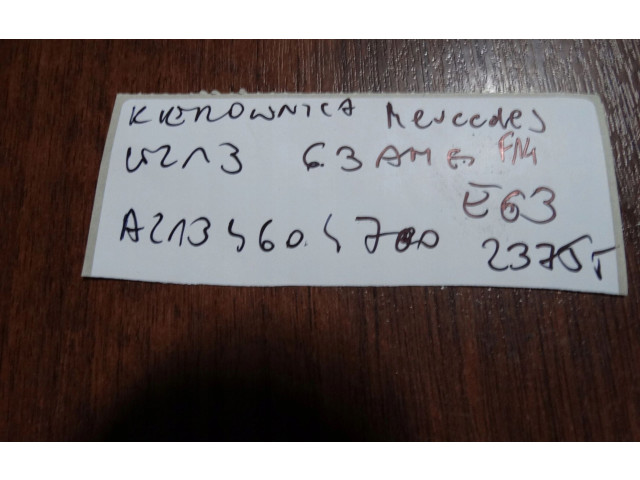 KIEROWNICA Mercedes
W213 63 AMG
E63
A213 460 4700
2375T